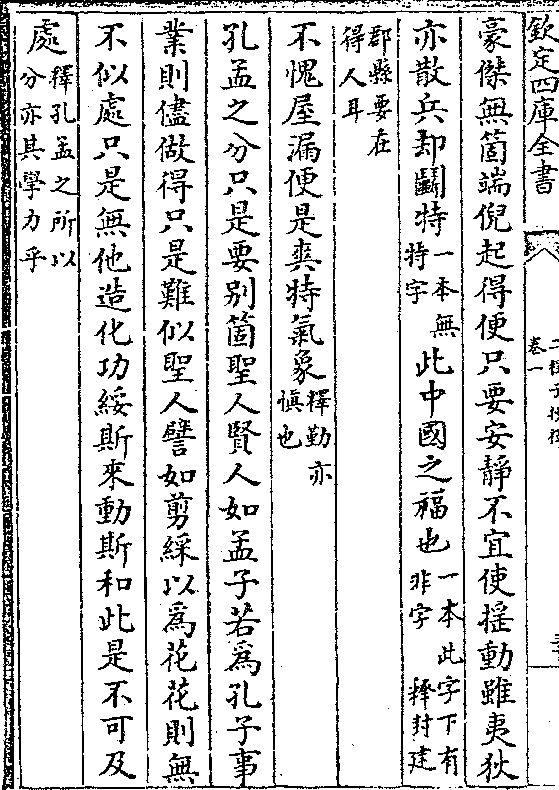 欽定四庫全書
卷一
豪傑無箇端倪起得便只要安靜不宜使揺動雖夷狄
亦散兵却鬭特一本無特字此中國之福也一本此字下有非字 釋封建
郡縣要在得人耳
不愧屋漏便是爽特氣象釋勤亦慎也
孔孟之分只是要别箇聖人賢人如孟子若為孔子事
業則儘做得只是難似聖人譬如剪綵以為花花則無
不似處只是無他造化功綏斯來動斯和此是不可及
處釋孔孟之所以分亦其學力乎